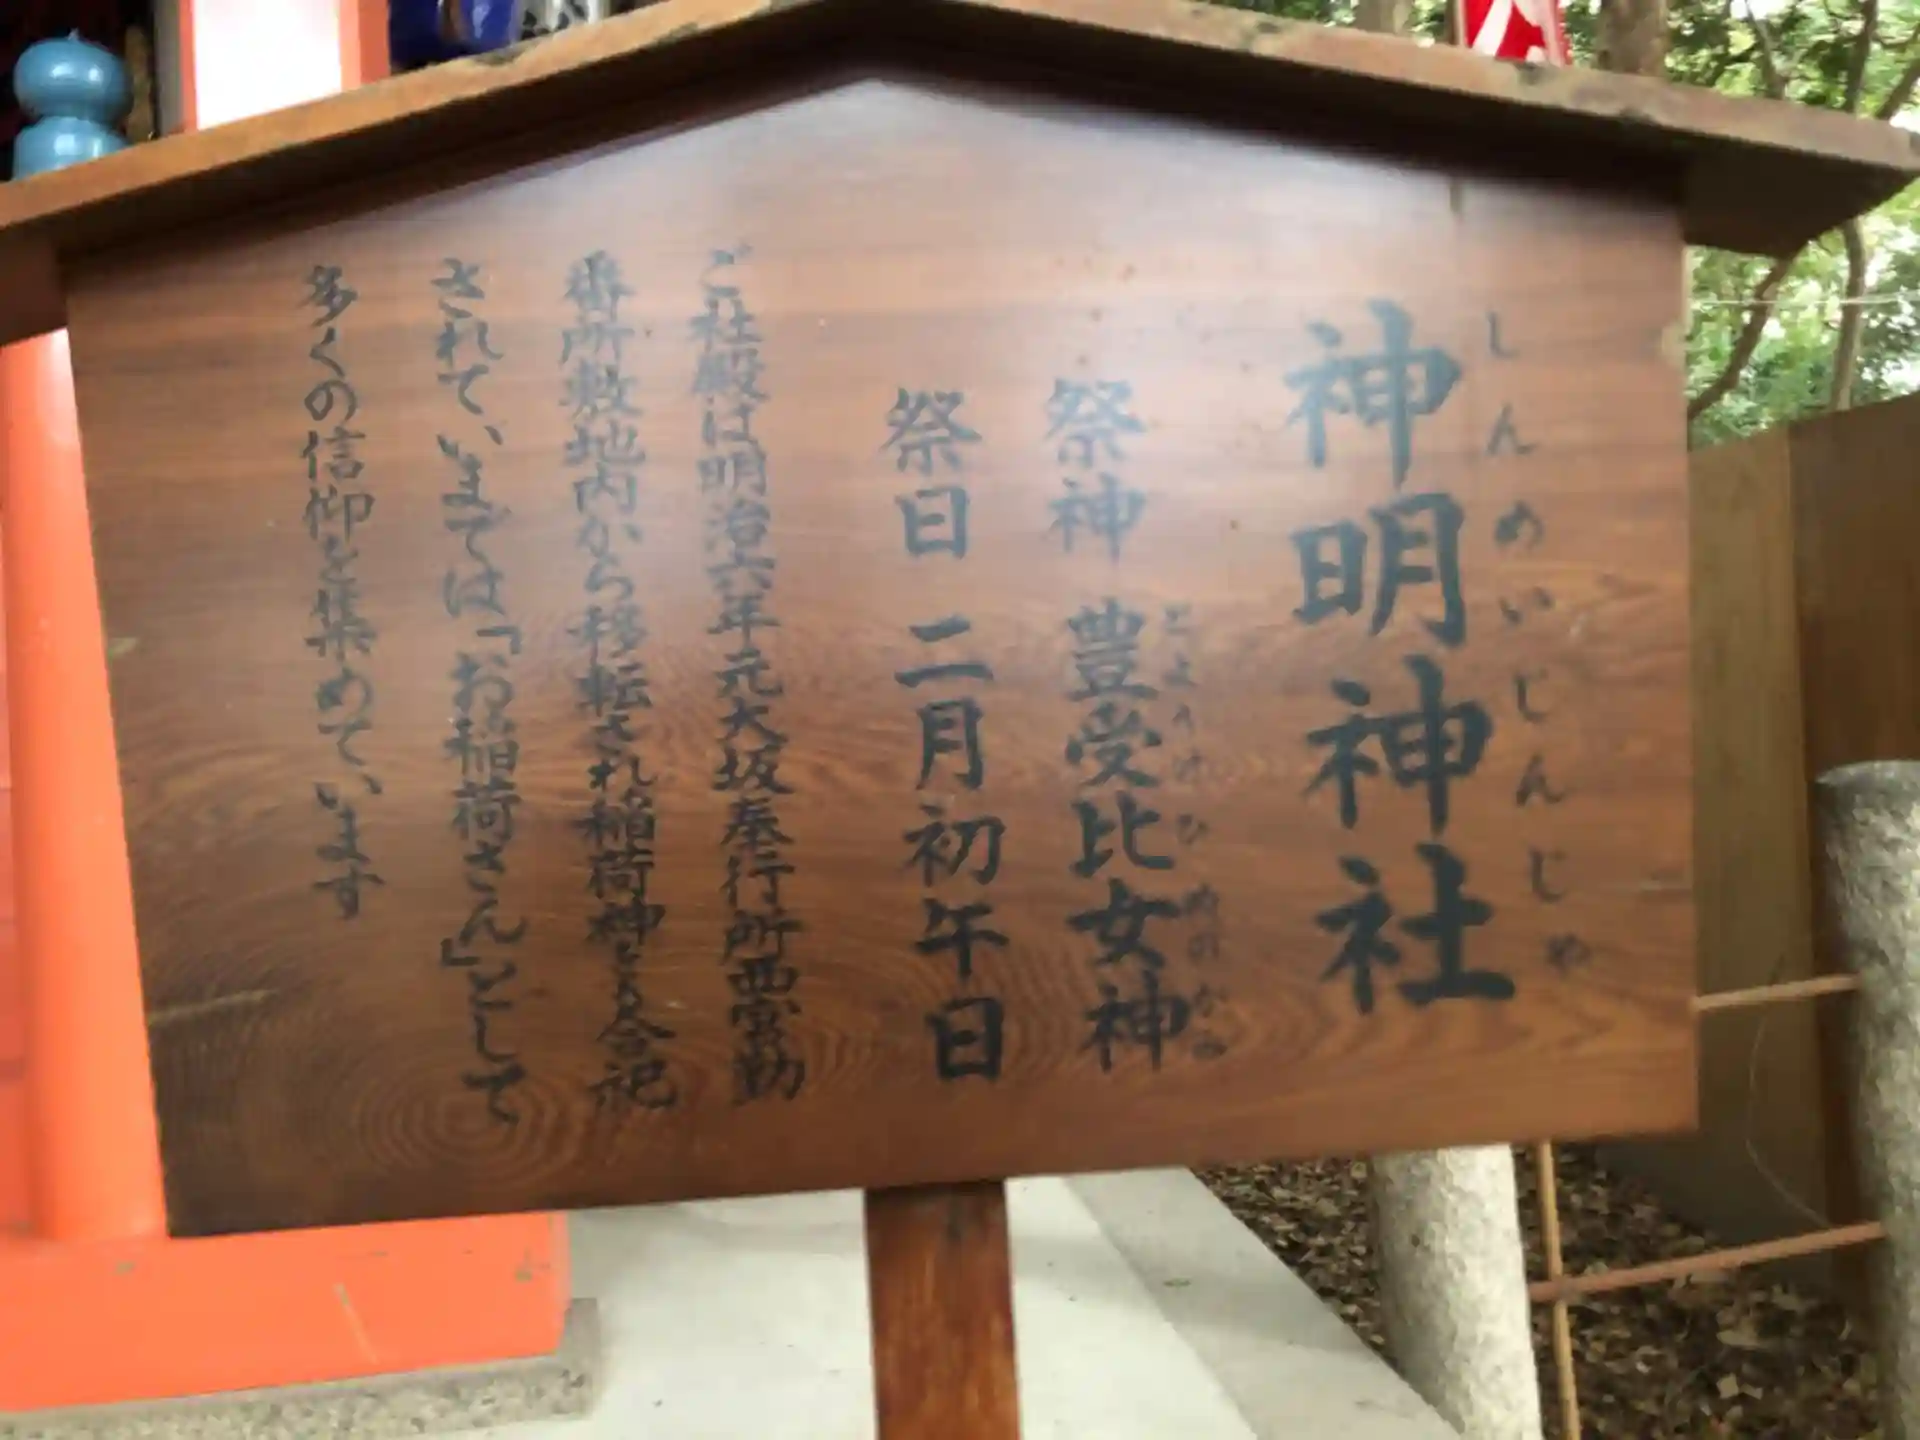 しんめいじんじゃ
神明神社
とようけひめのかみ
祭神 豊受比女神
祭日 二月初午日
ご社殿は明治六年元大坂奉行所西雪勤
番所敷地内から移転され稲荷神とも合祀
されて、いまでは「お稲荷さん」として
多くの信仰を集めています